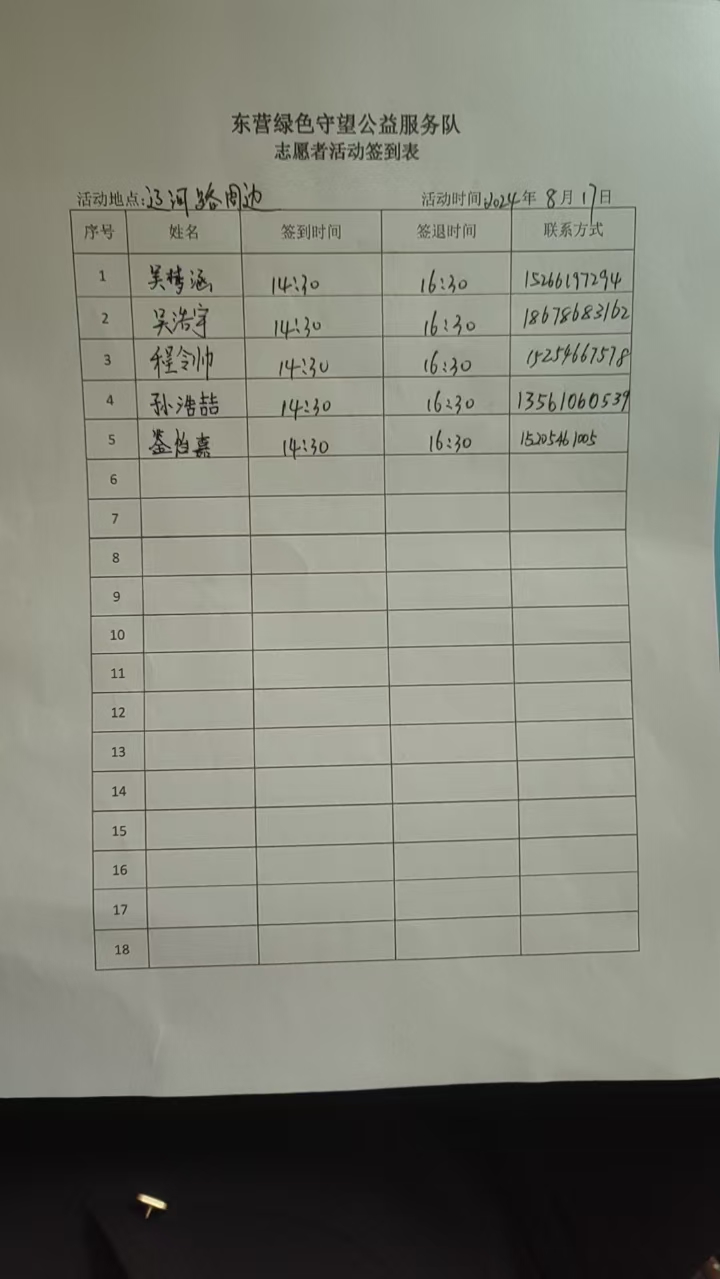 东营绿色守望公益服务队
志愿者活动签到表
活动地点:辽河路周边 活动时间:2024年8月17日
序号 姓名 签到时间 签退时间 联系方式
1 吴梦涵 14:30 16:30 15266197294
2 吴浩宇 14:30 16:30 18678683162
3 程令帅 14:30 16:30 15254667578
4 孙浩喆 14:30 16:30 13561060539
5 14:30 16:30 15205461005
6
7
8
9
10
11
12
13
14
15
16
17
18